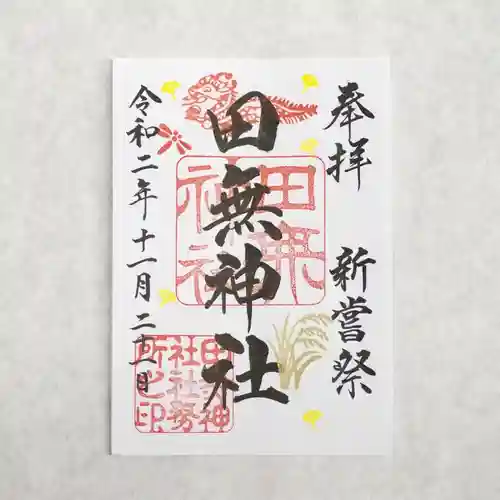 奉拝
新嘗祭
田無神社
令和二年十一月二十一日
田無神社
田無神社社務所之印